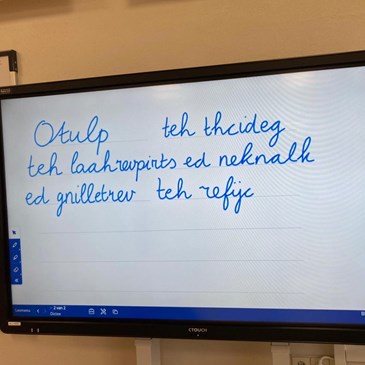 Otulp teh thcideg
teh laahrevpirts ed neknalk
ed gnilletrev teh refijc
2 van 2
CTOUCH